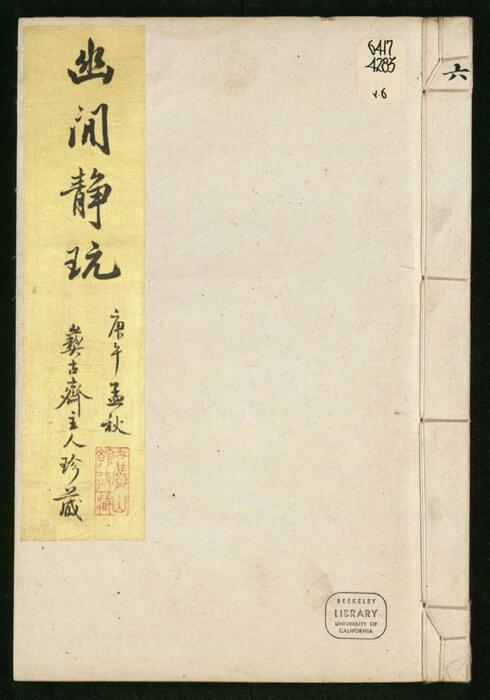 幽閒静玩
庚午孟秋
彝古齋主人珍藏
6417
4283
v.6
六
BERKELEY
LIBRARY
UNIVERSITY OF
CALIFORNIA